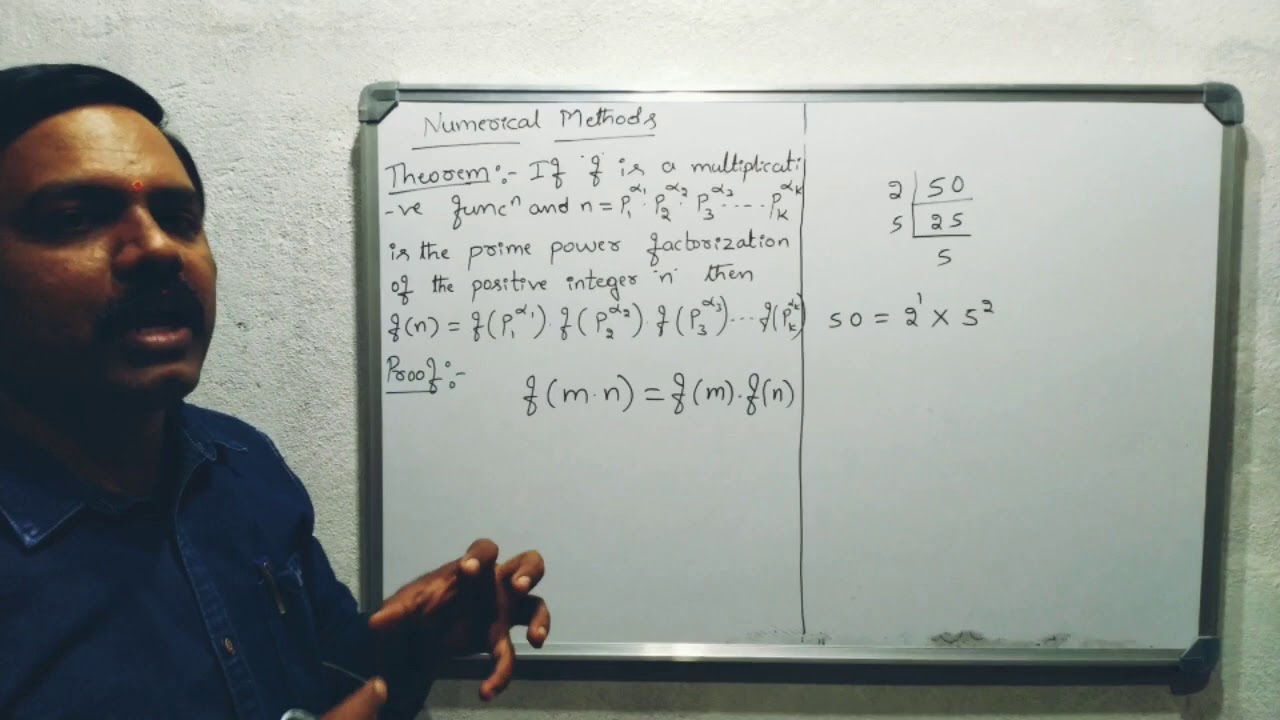 Numerical Methods
Theorem:- If 'f' is a multiplicati
-ve funcⁿ and n = P₁^α₁ · P₂^α₂ · P₃^α₃ ..... P_k^α_k
is the prime power factorization
of the positive integer 'n' then
f(n) = f(P₁^α₁) · f(P₂^α₂) · f(P₃^α₃) ... f(P_k^α_k)
Proof:-
f(m·n) = f(m)·f(n)
2 | 50
5 | 25
5
50 = 2¹ × 5²